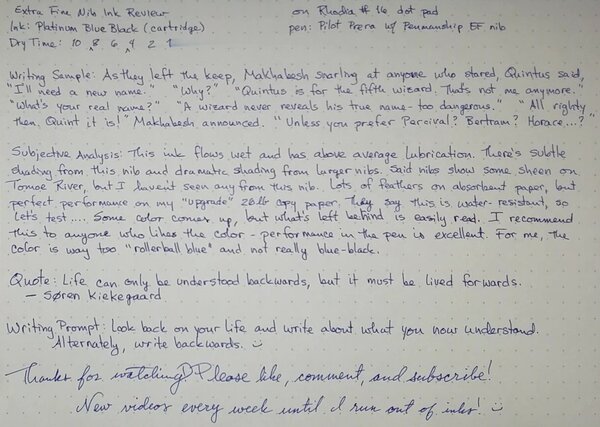 Extra Fine Nib Ink Review
on Rhodia #16 dot pad
Ink: Platinum Blue Black (cartridge)
pen: Pilot Prera w/ Penmanship EF nib
Dry Time: 10 8 6 4 2 1
Writing Sample: As they left the keep, Makhabesh snarling at anyone who stared, Quintus said,
"I'll need a new name." "Why?" "Quintus is for the fifth wizard. That's not me anymore."
"What's your real name?" "A wizard never reveals his true name - too dangerous." "All righty
then. Quint it is!" Makhabesh announced. "Unless you prefer Percival? Bertram? Horace...?"
Subjective Analysis: This ink flows wet and has above average lubrication. There's subtle
shading from this nib and dramatic shading from larger nibs. Said nibs show some sheen on
Tomoe River, but I haven't seen any from this nib. Lots of feathers on absorbent paper, but
perfect performance on my "upgrade" 28lb copy paper. They say this is water-resistant, so
let's test.... Some color comes up, but what's left behind is easily read. I recommend
this to anyone who likes the color - performance in the pen is excellent. For me, the
color is way too "rollerball blue" and not really blue-black.
Quote: Life can only be understood backwards, but it must be lived forwards.
- Søren Kiekegaard
Writing Prompt: Look back on your life and write about what you now understand.
Alternately, write backwards. :)
Thanks for watching! Please like, comment, and subscribe!
New videos every week until I run out of inks! :)